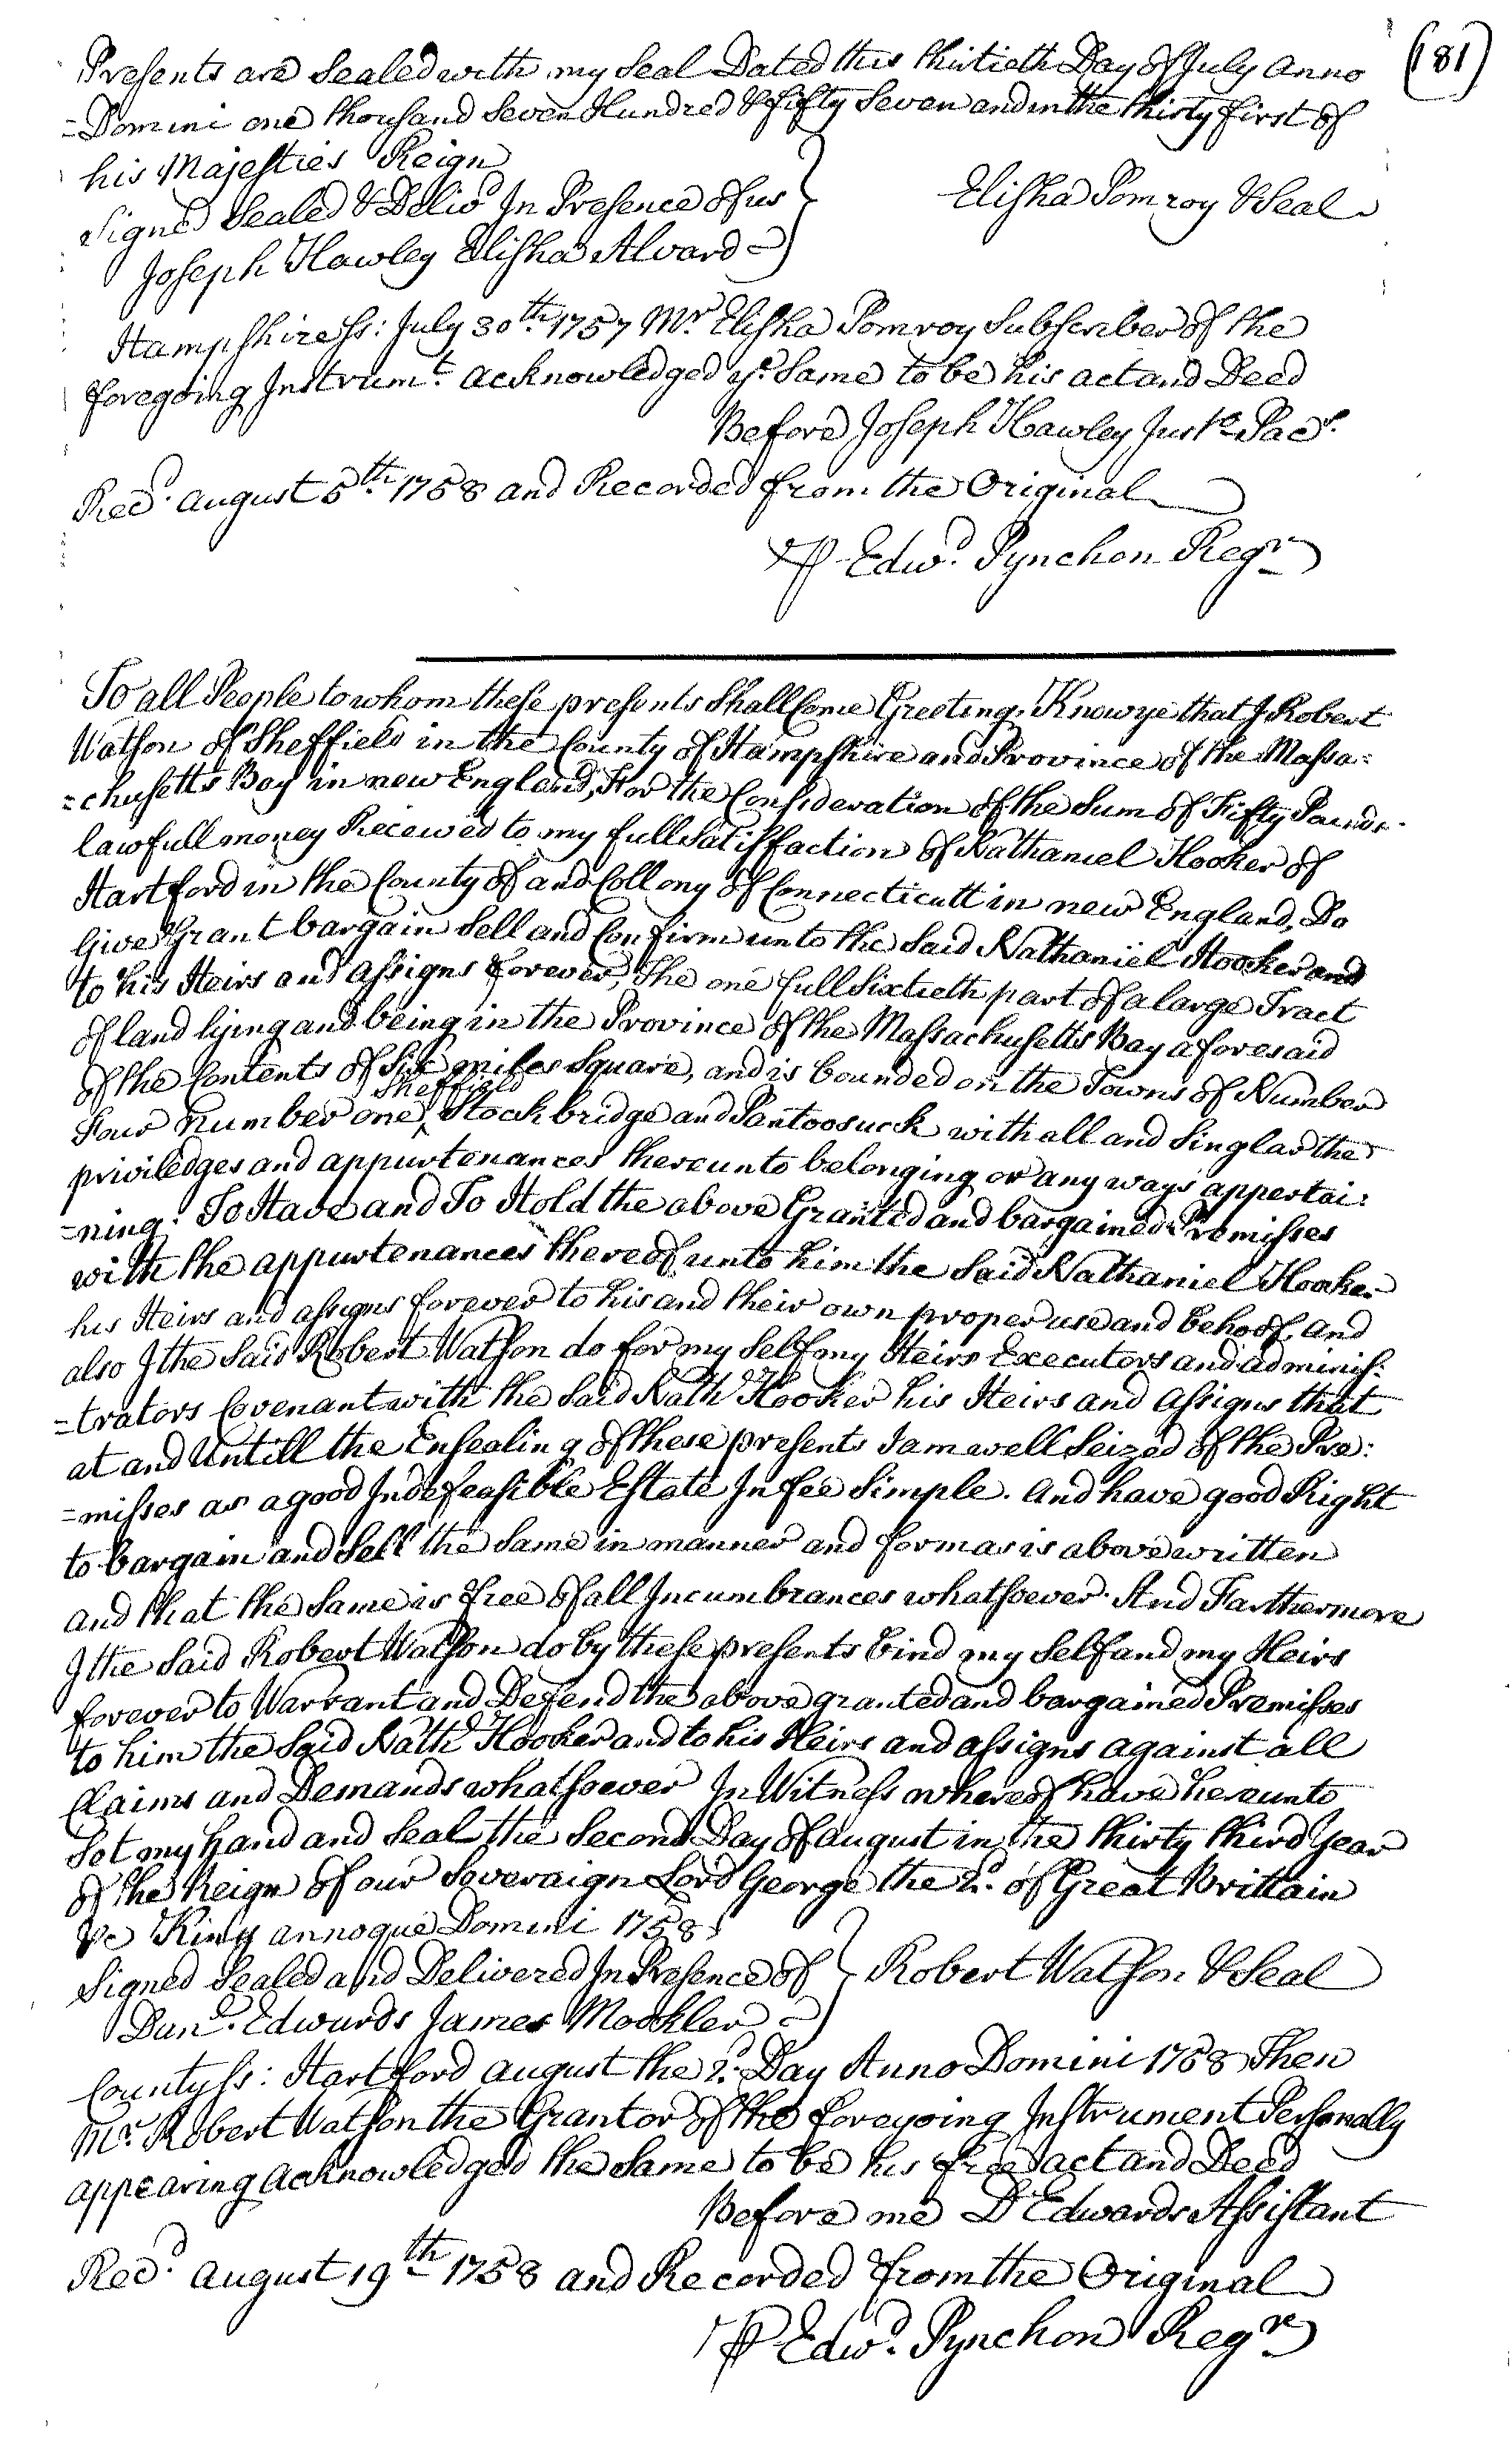 (181)
Presents are Sealed with my Seal Dated this thirtieth Day of July Anno
=Domini one thousand Seven Hundred & fifty Seven and in the thirty first of
his Majesties Reign
Signed Sealed & Delivd In Presence of us } Elisha Pomroy & Seal
Joseph Hawley Elisha Alvard
Hampshire ss: July 30th 1757 Mr. Elisha Pomroy Subscriber of the
foregoing Instrumt. acknowledged ye. Same to be his act and Deed
Before Joseph Hawley Juste. Pacs.
Recd. august 5th. 1758 and Recorded from the Original
⅌ Edwd. Pynchon Regr
To all People to whom these presents Shall Come Greeting, Know ye that I Robert
Watson of Sheffield in the County of Hampshire and Province of the Massa=
=chusetts Bay in new England, For the Consideration of the Sum of Fifty Pounds
lawfull money Received to my full Satisffaction of Nathaniel Hooker of
Hartford in the County of and Collony of Connecticutt in new England, Do
Give Grant bargain Sell and Confirm unto the Said Nathaniel Hooker and
to his Heirs and assigns forever, The one full Sixtieth part of a large Tract
of land lying and being in the Province of the Massachusetts Bay aforesaid
of the Contents of Six miles Square, and is bounded on the Towns of Number
Four Number one, ^Sheffield Stockbridge and Pantoosuck with all and Singlar the
priviledges and appurtenances thereunto belonging or any ways appertai=
=ning: To Have and To Hold the above Granted and bargained Premisses
with the appurtenances thereof unto him the Said Nathaniel Hooker
his Heirs and assigns forever to his and their own proper use and behoof, and
also I the Said Robert Watson do for my Self my Heirs Executors and adminis=
=trators Covenant with the Said Nathll Hooker his Heirs and assigns that
at and Untill the Ensealing of these presents I am well Seized of the Pre=
=misses as a good Indefeasible Estate In fee Simple. And have good Right
to bargain and Sell the Same in manner and form as is above written
and that the Same is free of all Incumbrances whatsoever. And Farthermore
I the Said Robert Watson do by these presents bind my Self and my Heirs
forever to Warrant and Defend the above granted and bargained Premisses
to him the Said Nathll Hooker and to his Heirs and assigns against all
Claims and Demands whatsoever In Witness whereof have hereunto
Set my hand and Seal the Second Day of august in the thirty third Year
of the Reign of our Soveraign Lord George the 2d. of Great Brittain
&c King annoque Domini 1758
Signed Sealed and Delivered In Presence of } Robert Watson & Seal
Danll. Edwards James Mookler
County ss: Hartford august the 2d. Day Anno Domini 1758 Then
Mr. Robert Watson the Grantor of the foregoing Instrument Personally
appearing acknowledged the Same to be his free act and Deed
Before me D Edwards Assistant
Recd. august 19th 1758 and Recorded from the Original
⅌ Edwd. Pynchon Regr